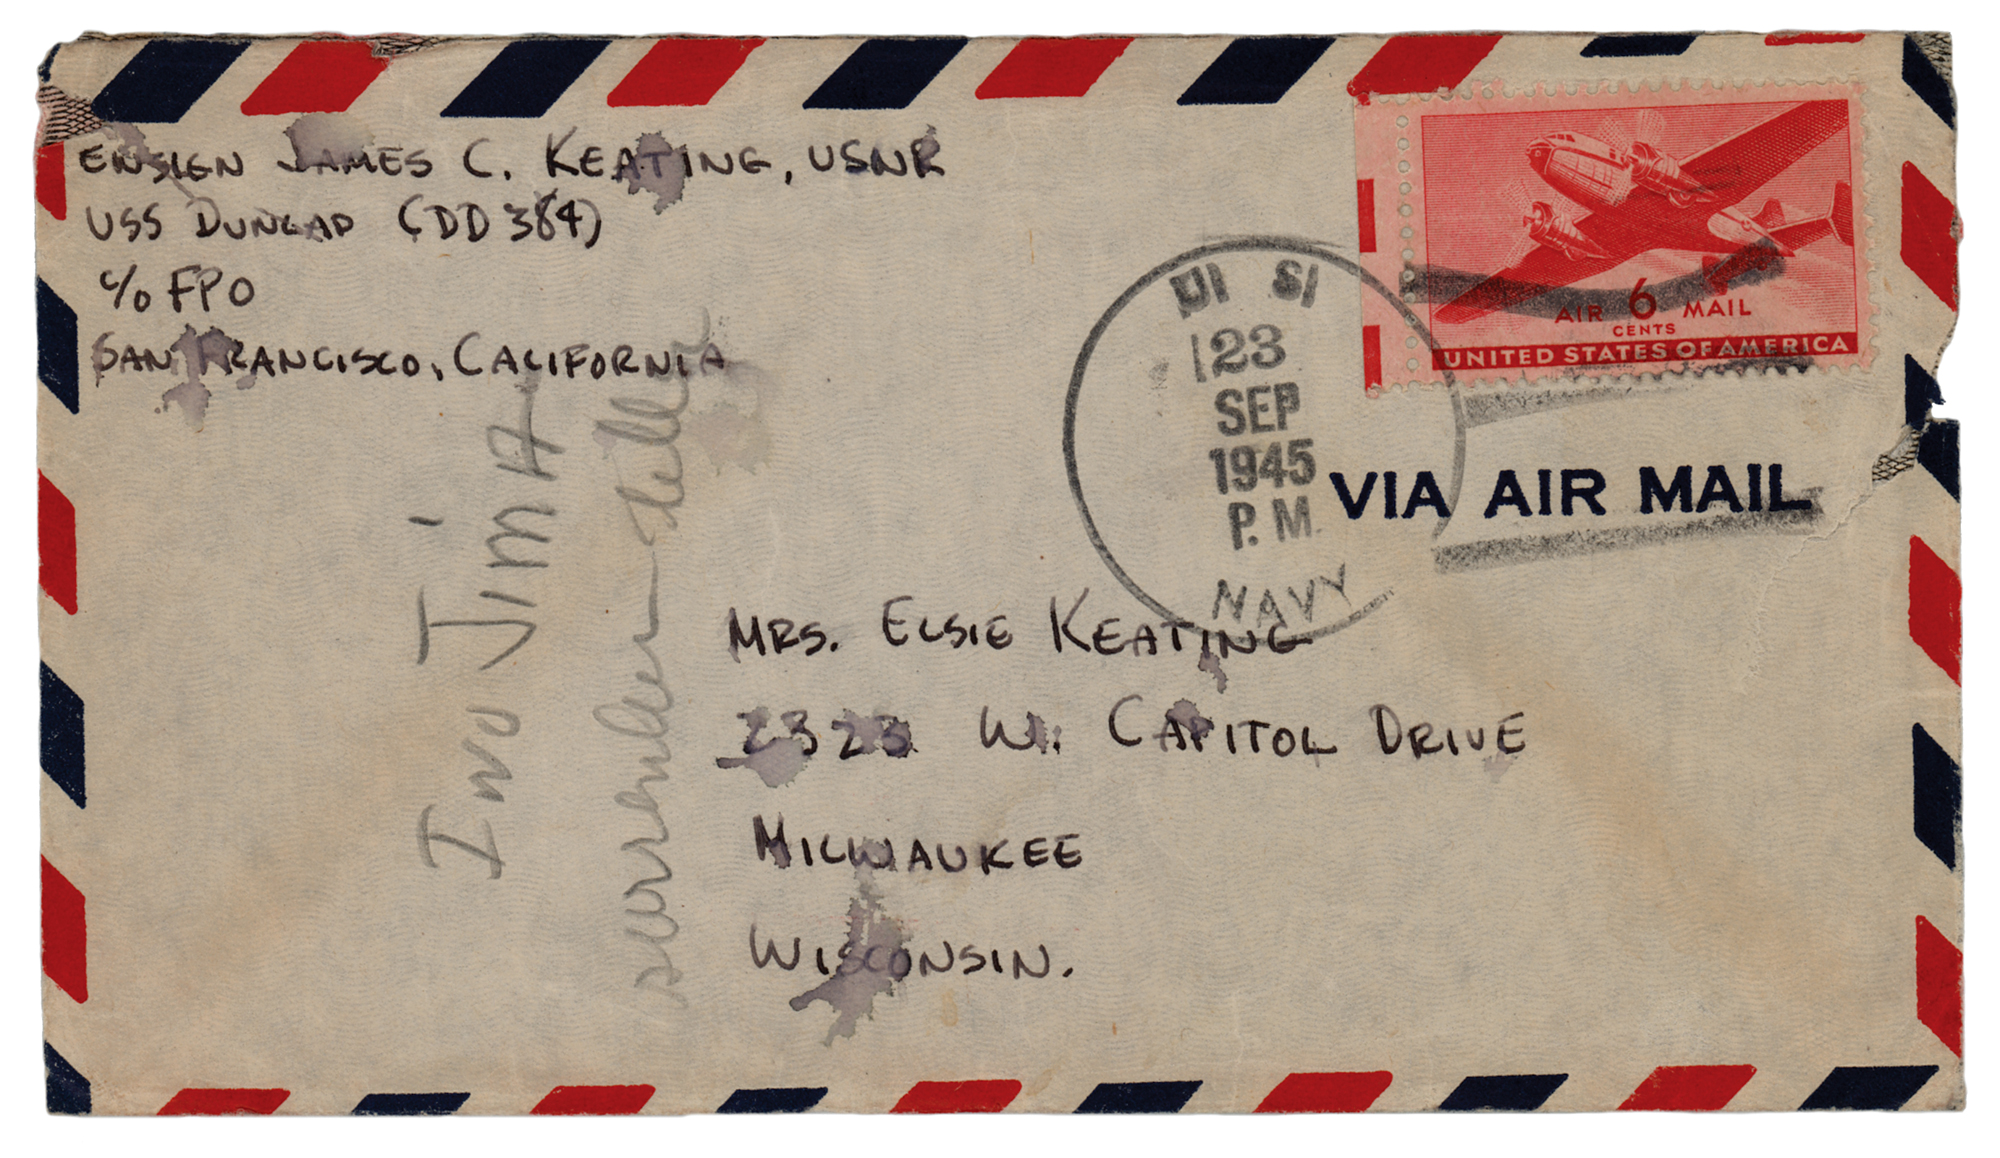 ENSIGN JAMES C. KEATING, USNR
USS DUNLAP (DD 384)
c/o FPO
SAN FRANCISCO, CALIFORNIA
AIR 6 MAIL
CENTS
UNITED STATES OF AMERICA
23
SEP
1945
P. M.
NAVY
VIA AIR MAIL
IWO JIMA
surrender letter
MRS. ELSIE KEATING
2323 W. CAPITOL DRIVE
MILWAUKEE
WISCONSIN.